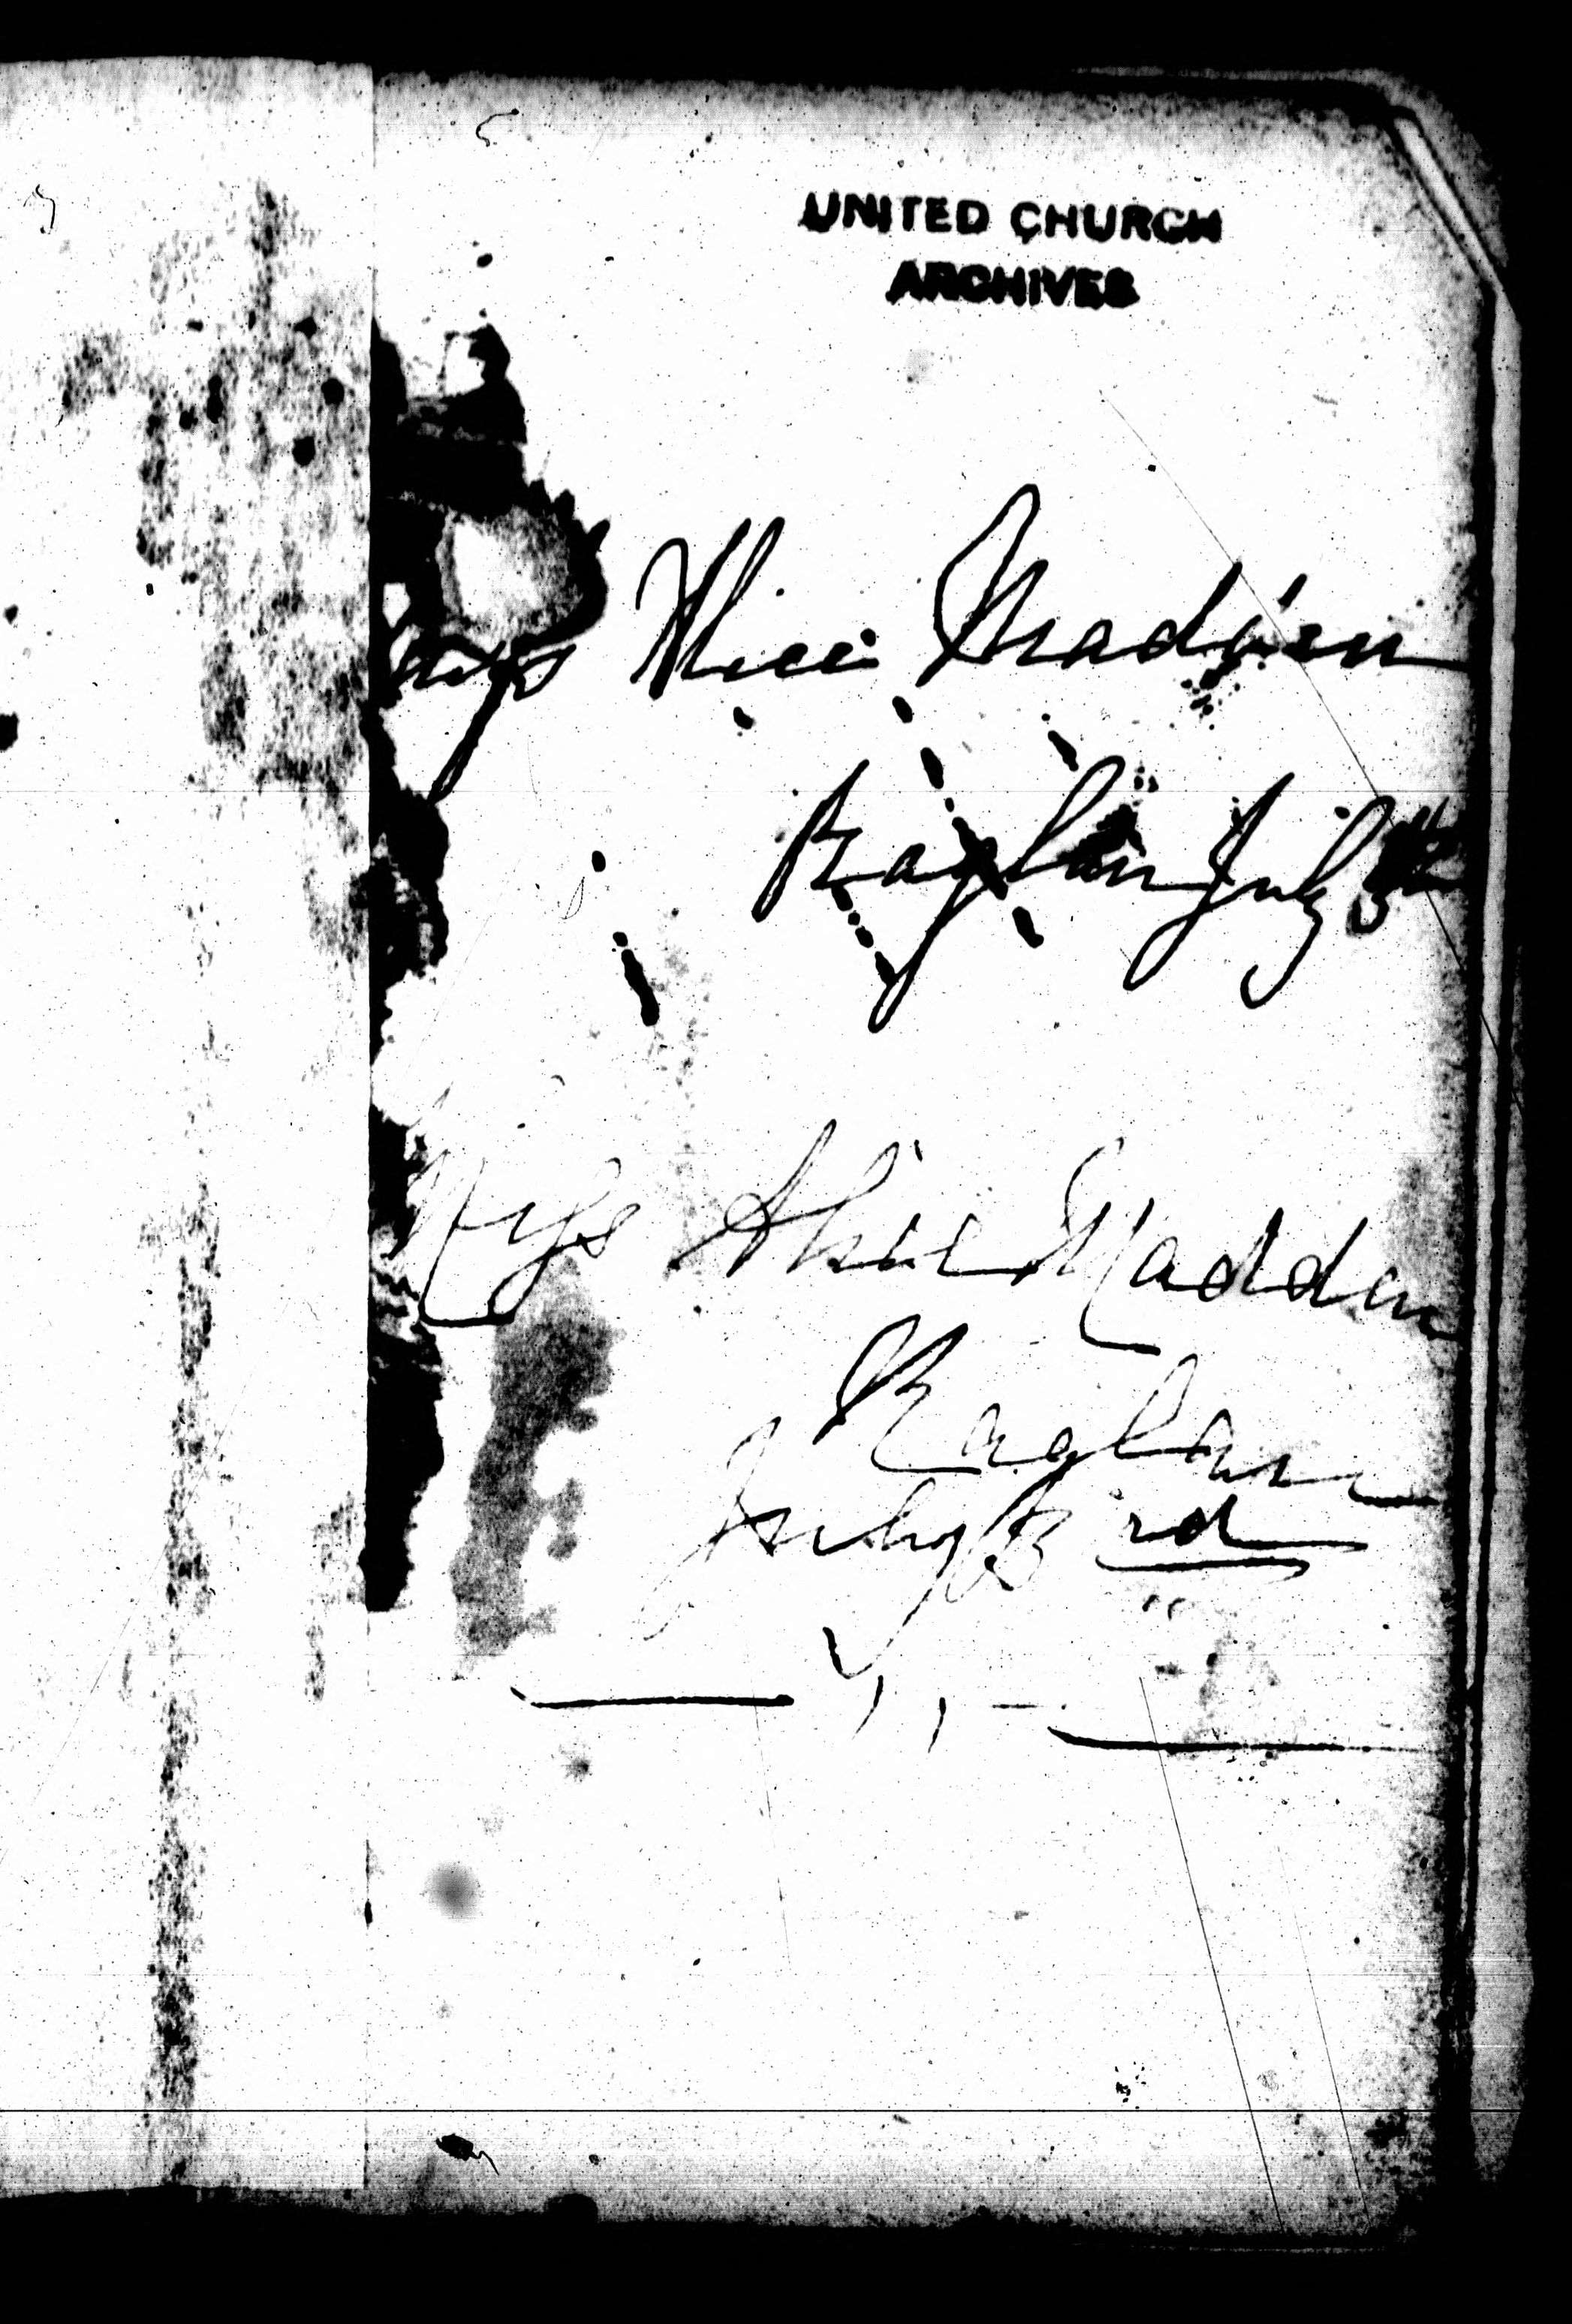 UNITED CHURCH
ARCHIVES
Alice Madden
Raglan July
Miss Alice Madden
Raglan
July 3 rd